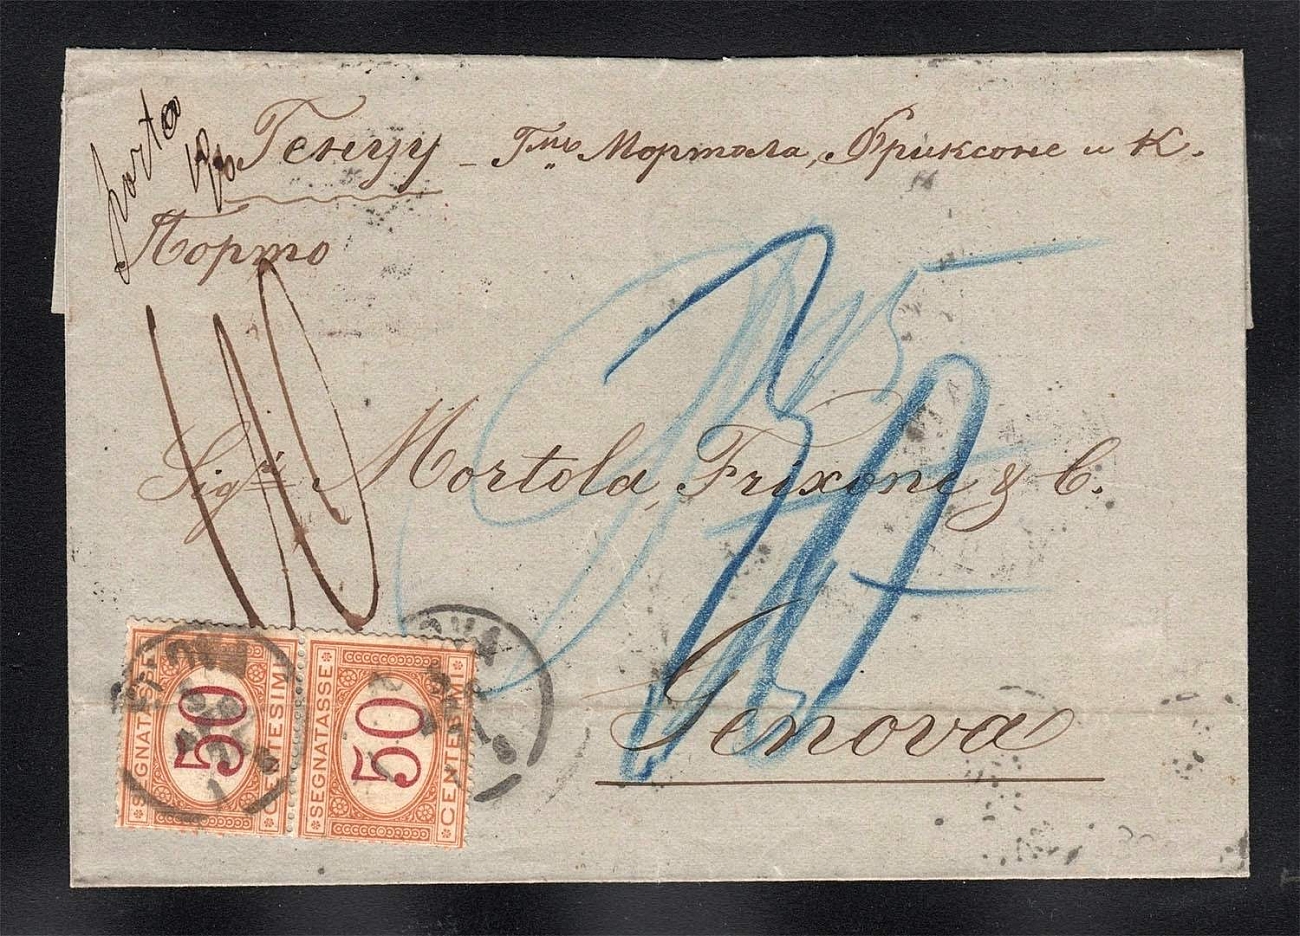 porto
Въ Геную - Гмъ Мортола, Фриксоне и К.
Порто
Sigri Mortola, Frixone & C.
Genova
SEGNATASSE 50 CENTESIMI
SEGNATASSE 50 CENTESIMI